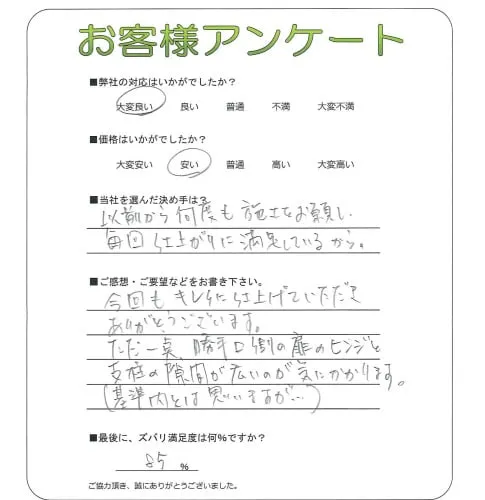 お客様アンケート
■弊社の対応はいかがでしたか？
大変良い 良い 普通 不満 大変不満
■価格はいかがでしたか？
大変安い 安い 普通 高い 大変高い
■当社を選んだ決め手は？
以前から何度も施工をお願いし
毎回仕上がりに満足しているから。
■ご感想・ご要望などをお書き下さい。
今回もキレイに仕上げていただき
ありがとうございます。
ただ一点、勝手口側の扉のヒンジと
支柱の隙間が広いのが気にかかります。
(基準内とは思いますが…)
■最後に、ズバリ満足度は何%ですか？
85 %
ご協力頂き、誠にありがとうございました。